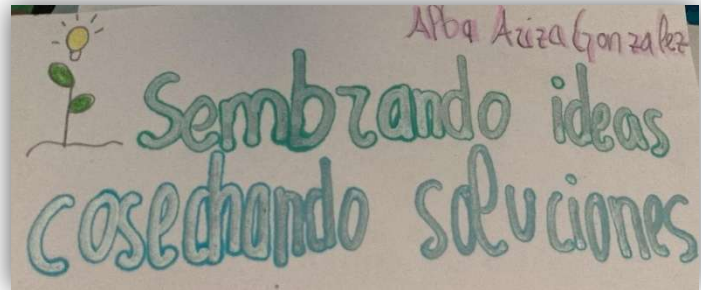 Alba Ariza Gonzalez
Sembrando ideas
cosechando soluciones